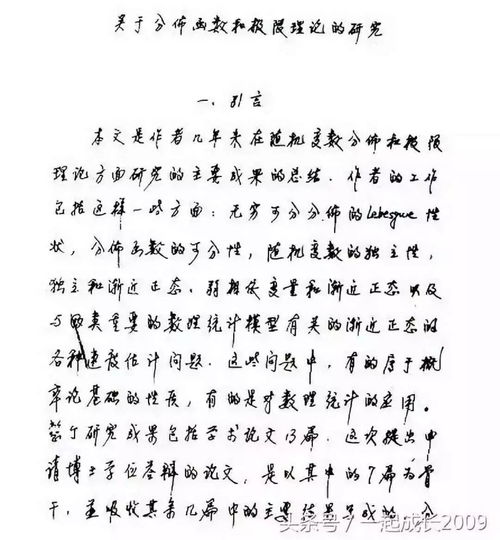 关于分佈函数和极限理论的研究
一、引言
本文是作者几年来在随机变数分佈和极限
理论方面研究的主要成果的总结。作者的工作
包括这样一些方面：无穷可分分佈的Lebesgue性
状，分佈函数的可分性，随机变数的独立性，
独立和渐近正态、弱相依变量和渐近正态以及
与两类重要的数理统计模型有关的渐近正态的
各种速度估计问题。这些问题中，有的属于概
率论基础的性质，有的是对数理统计的应用。
整个研究成果包括学术论文13篇。这次提出申
请博士学位答辩的论文，是以其中的7篇为骨
干，并吸收其余几篇中的主要结果写成的。全
头条号 / 一起成长2009